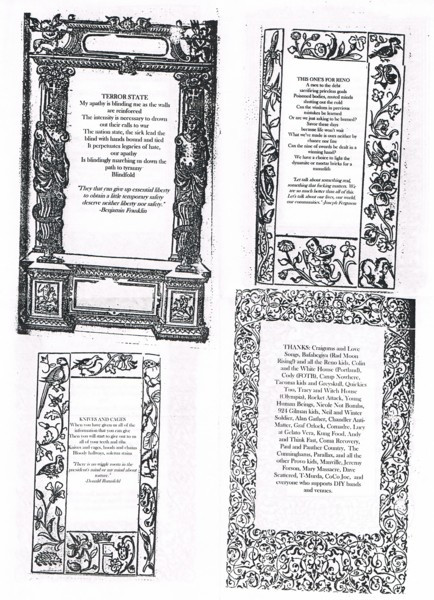 TERROR STATE
My apathy is blinding me as the walls
are reinforced
The intensity is necessary to drown
out their calls to war
The nation state, the sick lead the
blind with hands bound and tied
It perpetuates legacies of hate,
our apathy
Is blindingly marching us down the
path to tyranny
Blindfold
"They that can give up essential liberty
to obtain a little temporary safety
deserve neither liberty nor safety."
-Benjamin Franklin
THIS ONE'S FOR RENO
A race to the debt
sacrificing priceless goods
Poisoned bodies, muted minds
shutting out the cold
Can the wisdom in previous
mistakes be learned
Or are we just asking to be burned?
Savor these days
because life won't wait
What we've made is ours neither by
chance nor fate
Can the nine of swords be dealt in a
winning hand?
We have a choice to light the
dynamite or mortar bricks for a
monolith
"Let talk about something real,
something that fucking matters. We
are so much better than all of this
Let's talk about our lives, our world,
our communities." Joseph Ferguson
KNIVES AND CAGES
When you have given us all of the
information that you can give
Then you will start to give our to us
all of your teeth and
Knives and cages, hoods and chains
Bloody hallways,
"There is no wiggle room in the
president's mind or my mind about
torture."
Donald Rumsfeld
THANKS: Craigums and Love
Songs, Balabegins (Bad Moon
Rising!) and all the Reno kids, Colin
and the White House (Portland),
Cody (FOTB), Camp Nowhere,
Tacoma kids and Greyskull, Quickies
Too, Tracy and Witch House
(Olympia), Rocket Attack, Young
Human Beings, Nicole Not Bombs,
924 Gilman kids, Neil and Winter
Soldier, Alan Gather, Chandler Anti-
Matter, Graf Orlock, Comadre, Lucy
at Gelato Vera, Kung Food, Andy
and Think Fast, Coma Recovery,
Paul and Panther Country, The
Cunninghams, Parallax, and all the
other Provo kids, Manville, Jeremy
Forson, Mary Massacre, Dave
Scattered, T-Murda, CoCo Joe, and
everyone who supports DIY bands
and venues.